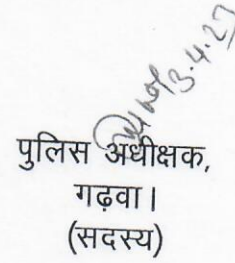 3.4.27
पुलिस अधीक्षक,
गढ़वा।
(सदस्य)